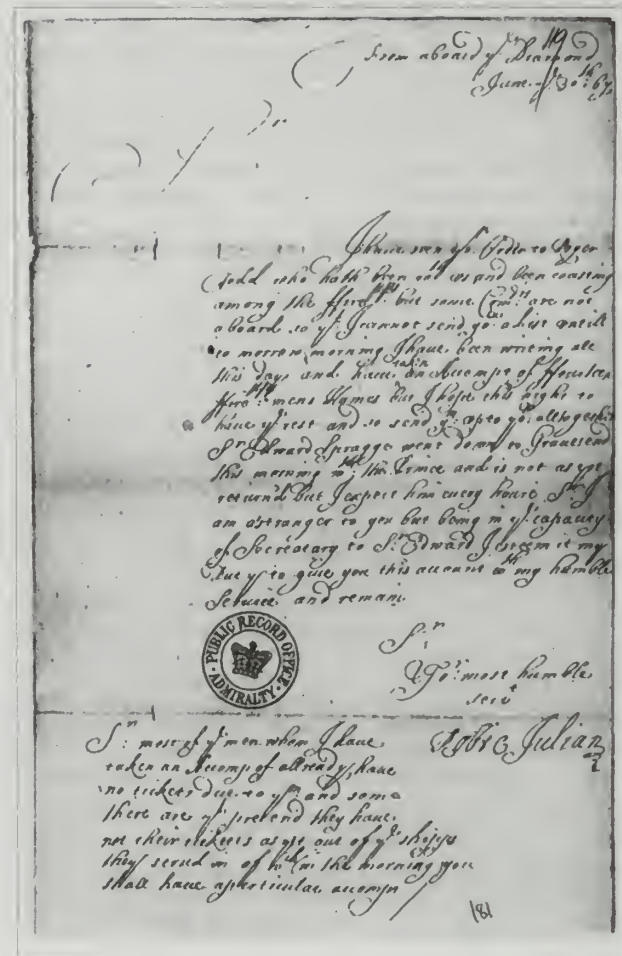 119
From aboard yͤ Diamond
June yͤ 30ᵗʰ: 67
Sʳ
I have seen yoʳ Order to Roger
Todd who hath been wᵗʰ us and been coasting
among the ffireshipps but some Comdʳˢ are not
aboard so yᵗ I cannot send yo: a List untill
to morrow morning I have been writing all
this day, and have taken an Accompt of ffourteen
ffire: mens Names but I hope this night to
have yᵉ rest and so send yᵐ up to yoᵘ altogether
Sʳ Edward Spragge went down to Gravesend
this morning wᵗʰ the Prince and is not as yet
return'd but I expect him every houre Sʳ I
am a stranger to you but being in yᵉ capacity
of Secretary to Sʳ Edward I esteem it my
duty to give you this account wᵗʰ my humble
Service and remain
Sʳ
Yoʳ: most humble
servᵗ
Robᵗ Julian
PUBLIC RECORD OFFICE
ADMIRALTY
Sʳ: most of yᵉ men whom I have
taken an Accompᵗ of allready, have
no tickets due to yᵐ and some
there are yᵗ pretend they have
not their tickets as yet out of yᵉ shipps
they served in of wᶜʰ in the morning you
shall have a perticular accompᵗ
181